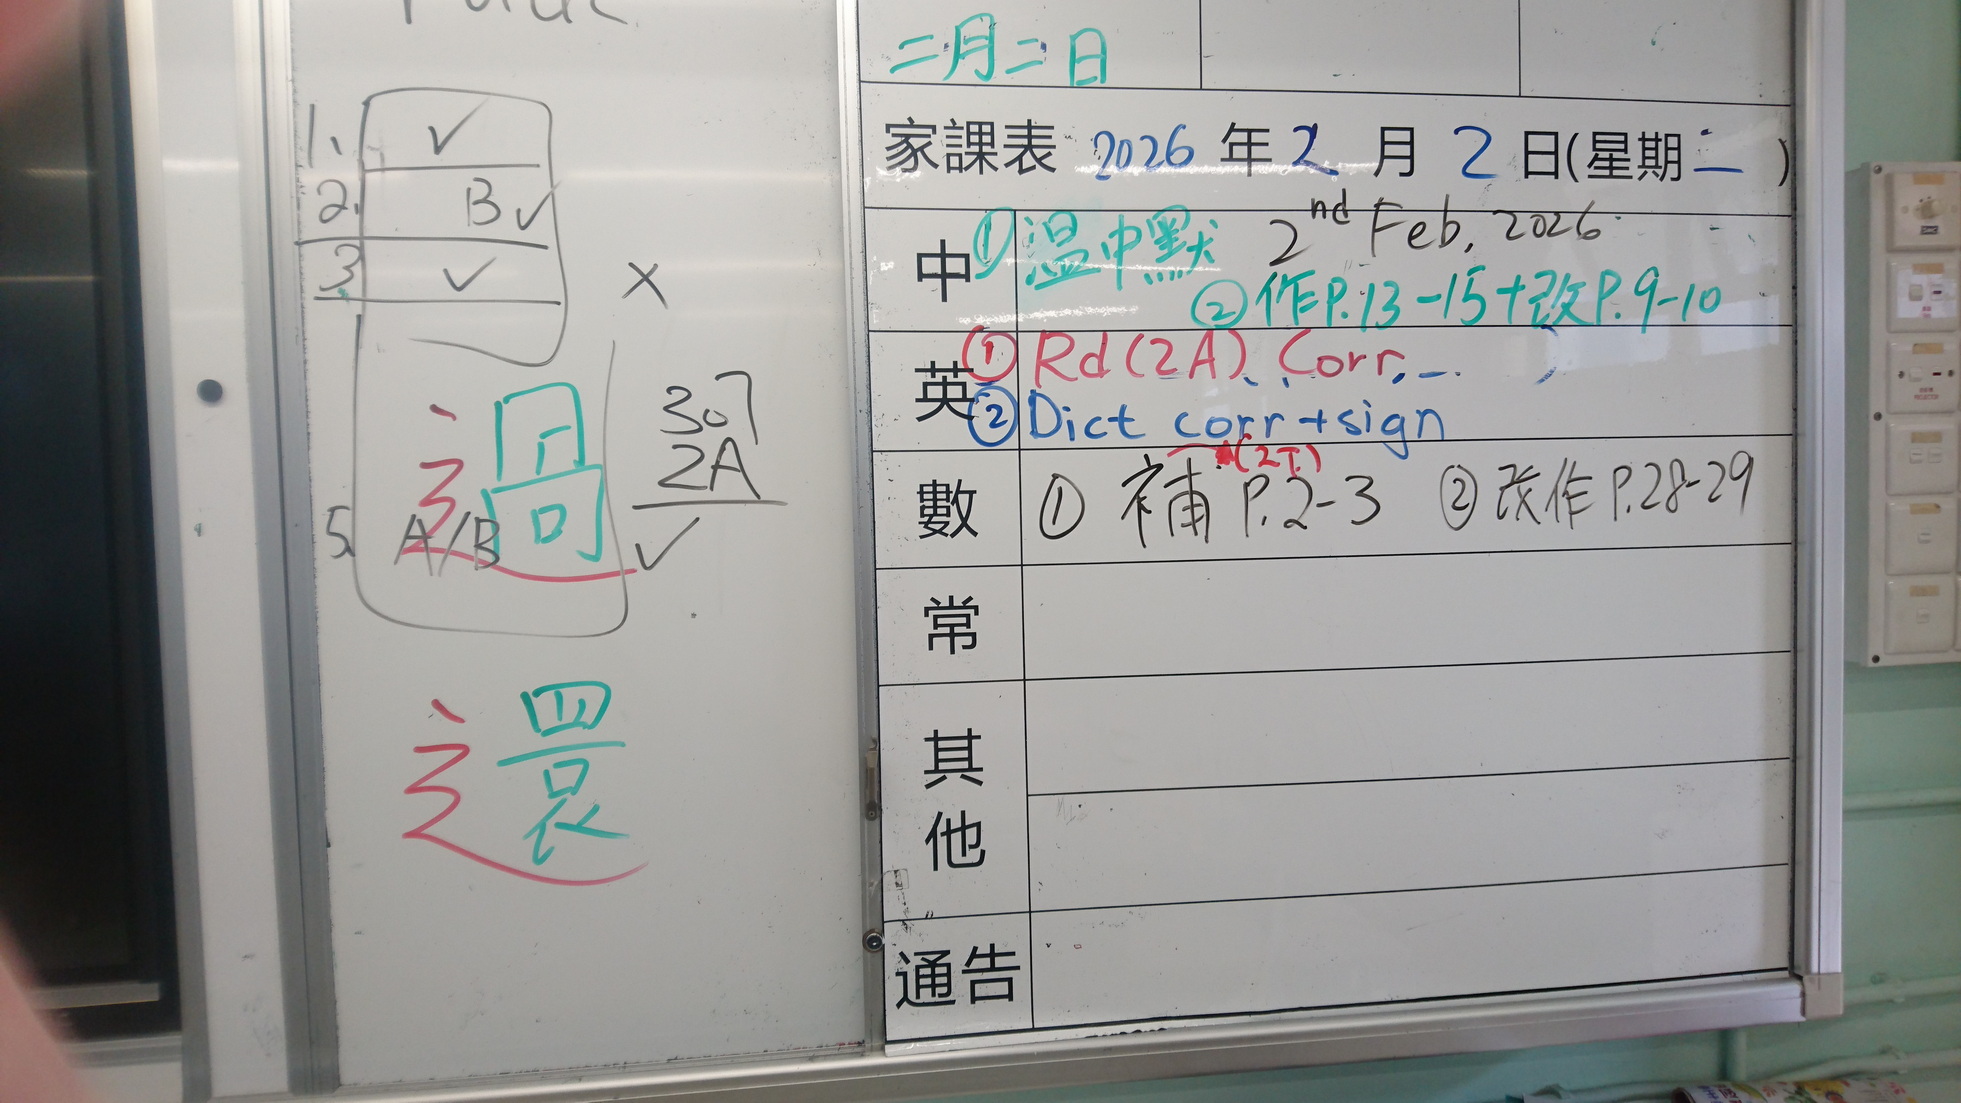 1.
2. B
3
x
過
307
2A
5. A/B
還
二月二日
家課表 2026 年 2 月 2 日(星期二)
中 ①温中默 2nd Feb, 2026
②作P.13-15+改P.9-10
英 ① Rd (2A) Corr.
② Dict corr + sign
(2T)
數 ① 補 P.2-3 ② 改作 P.28-29
常
其他
通告